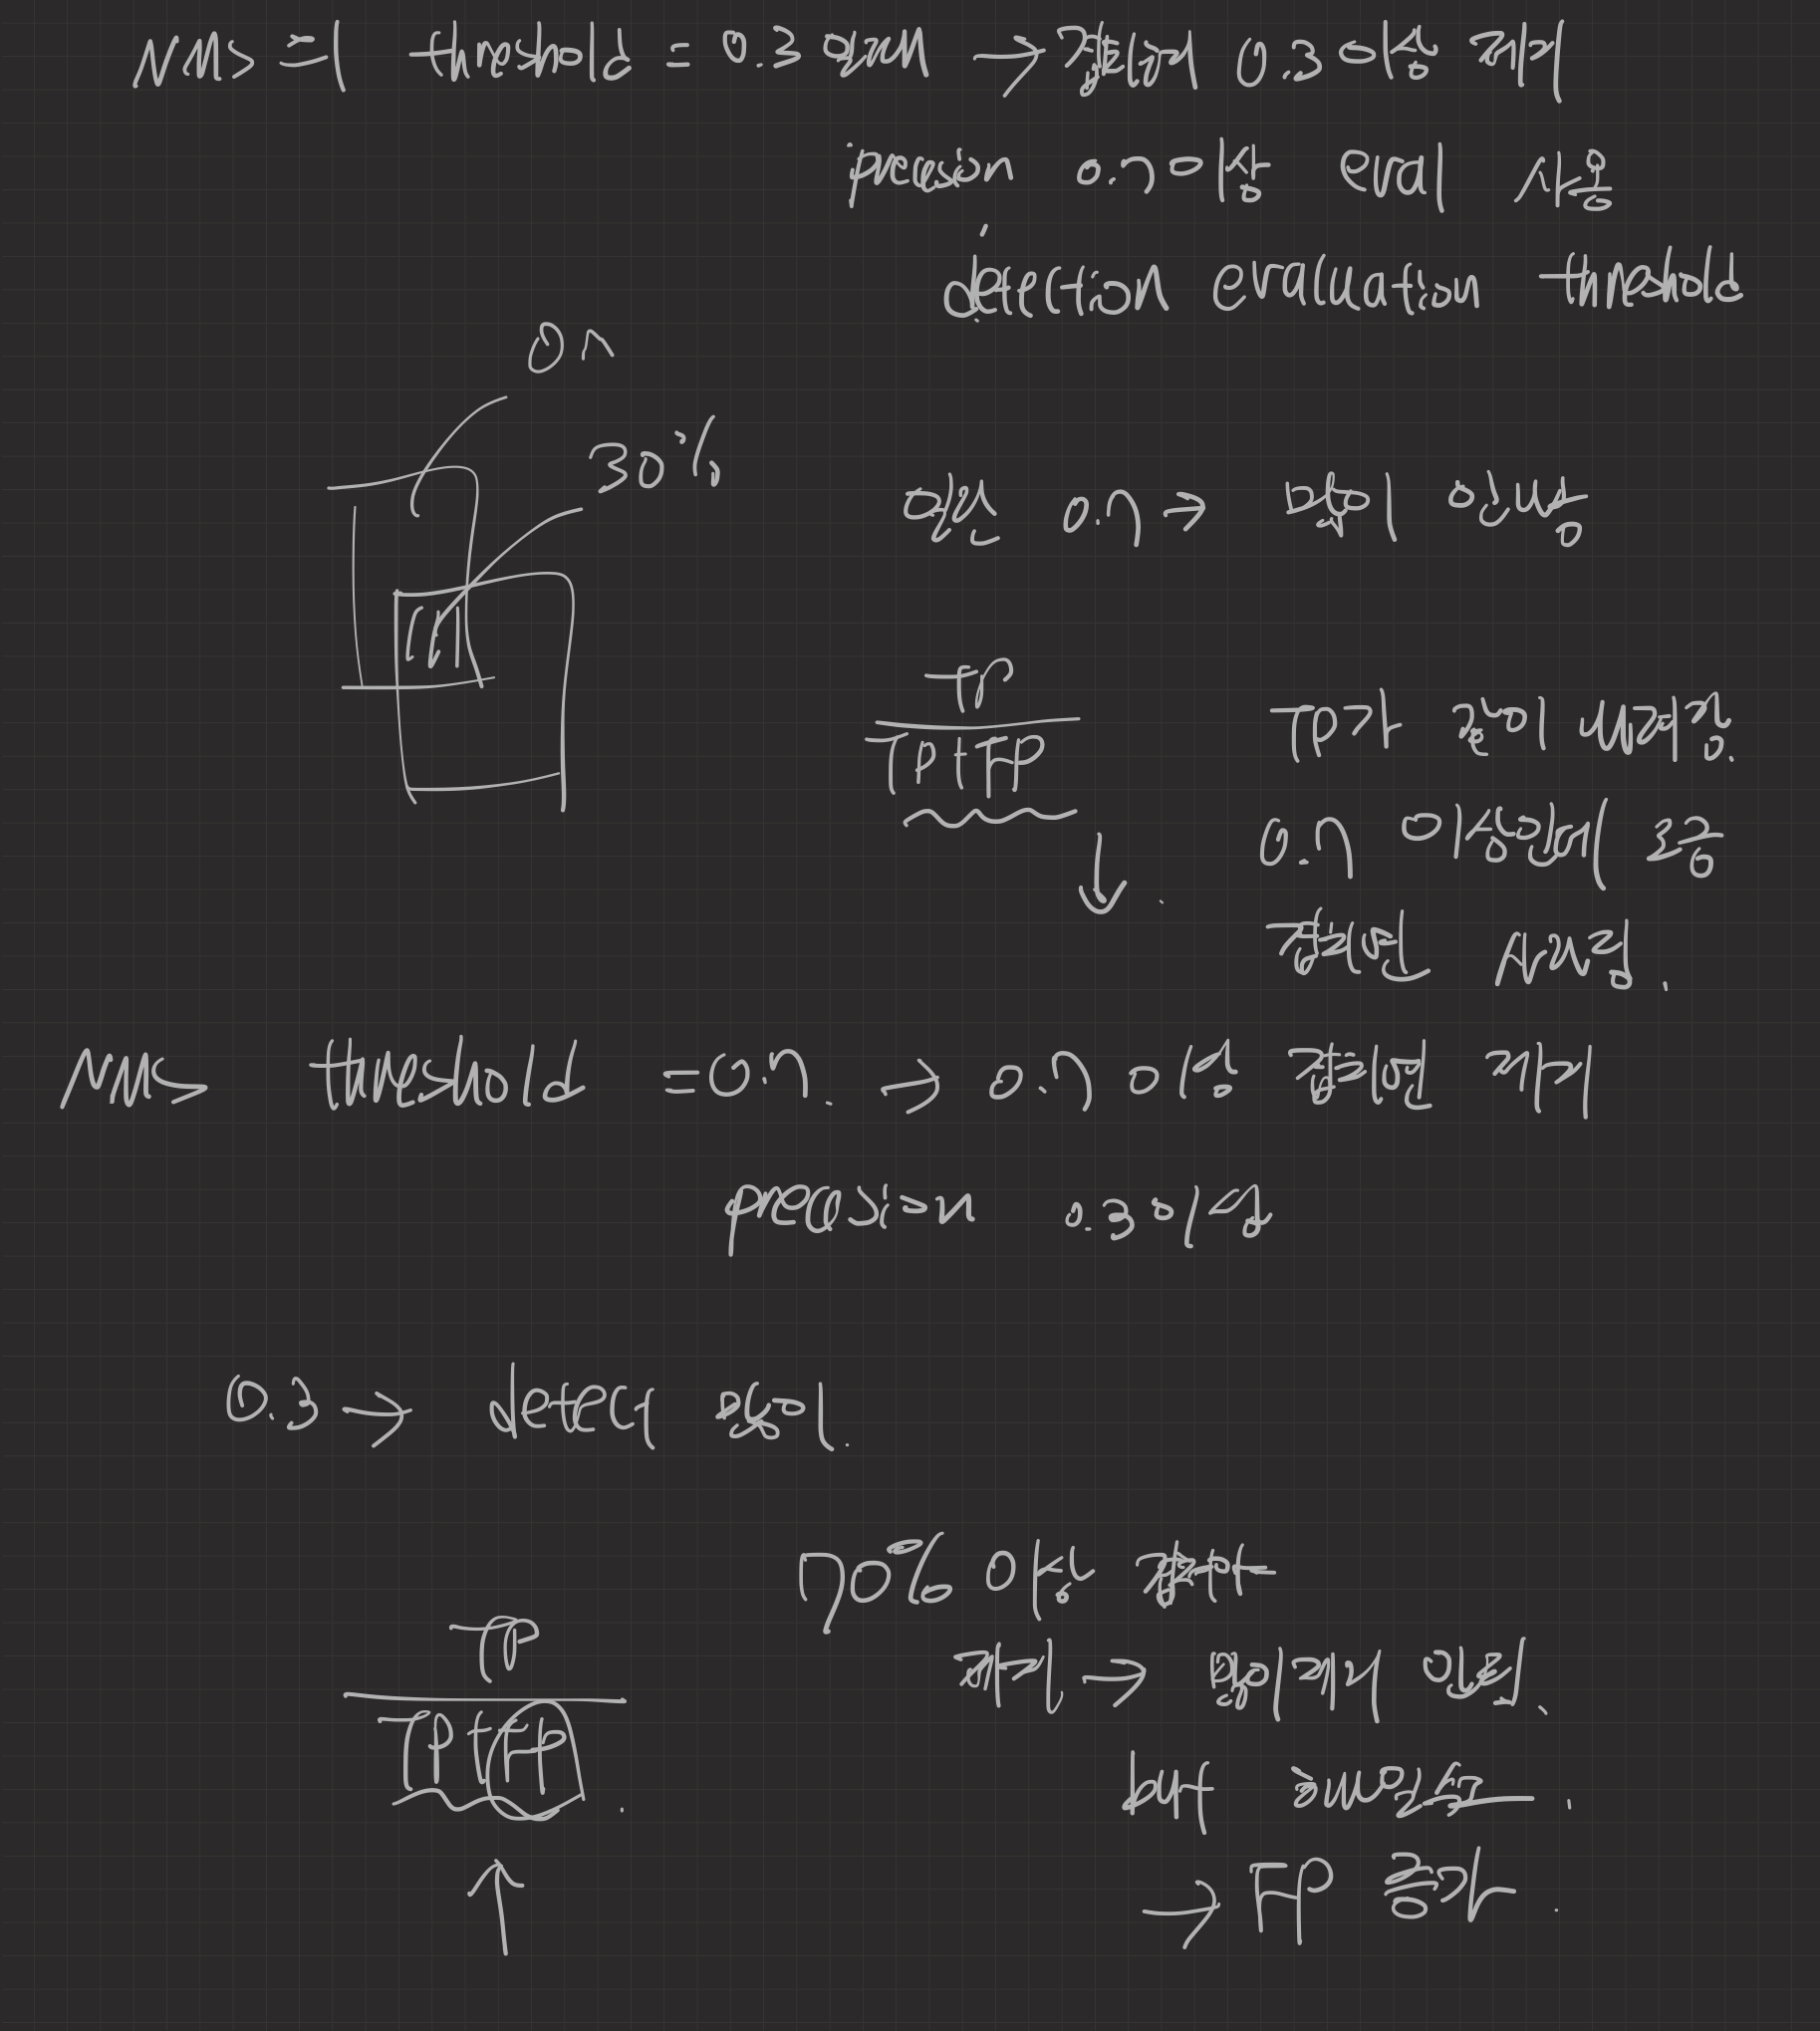 NMS의 threshold = 0.3 일때 → 겹쳐서 0.3 이상 제거
precision 0.7 이상 eval 사용
detection evaluation threshold
0.7
30%
일단 0.7 → 많이 안나옴
TP
TP+FP
TP가 많이 내려감.
0.7 이상인데 0.3
겹치면 사라짐.
NMS threshold = 0.7. → 0.7 이상 겹치면 제거
precision 0.3 이상
0.3 → detect 많이.
70% 이상 겹쳐야
제거 → 많이 제거 안됨.
TP
TP+FP
but
→ FP 증가.